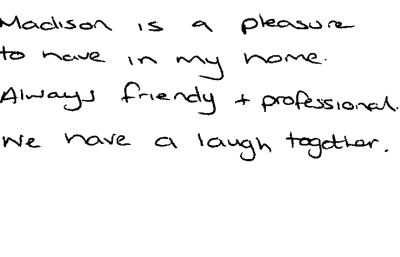 Madison is a pleasure
to have in my home.
Always friendy + professional.
We have a laugh together.